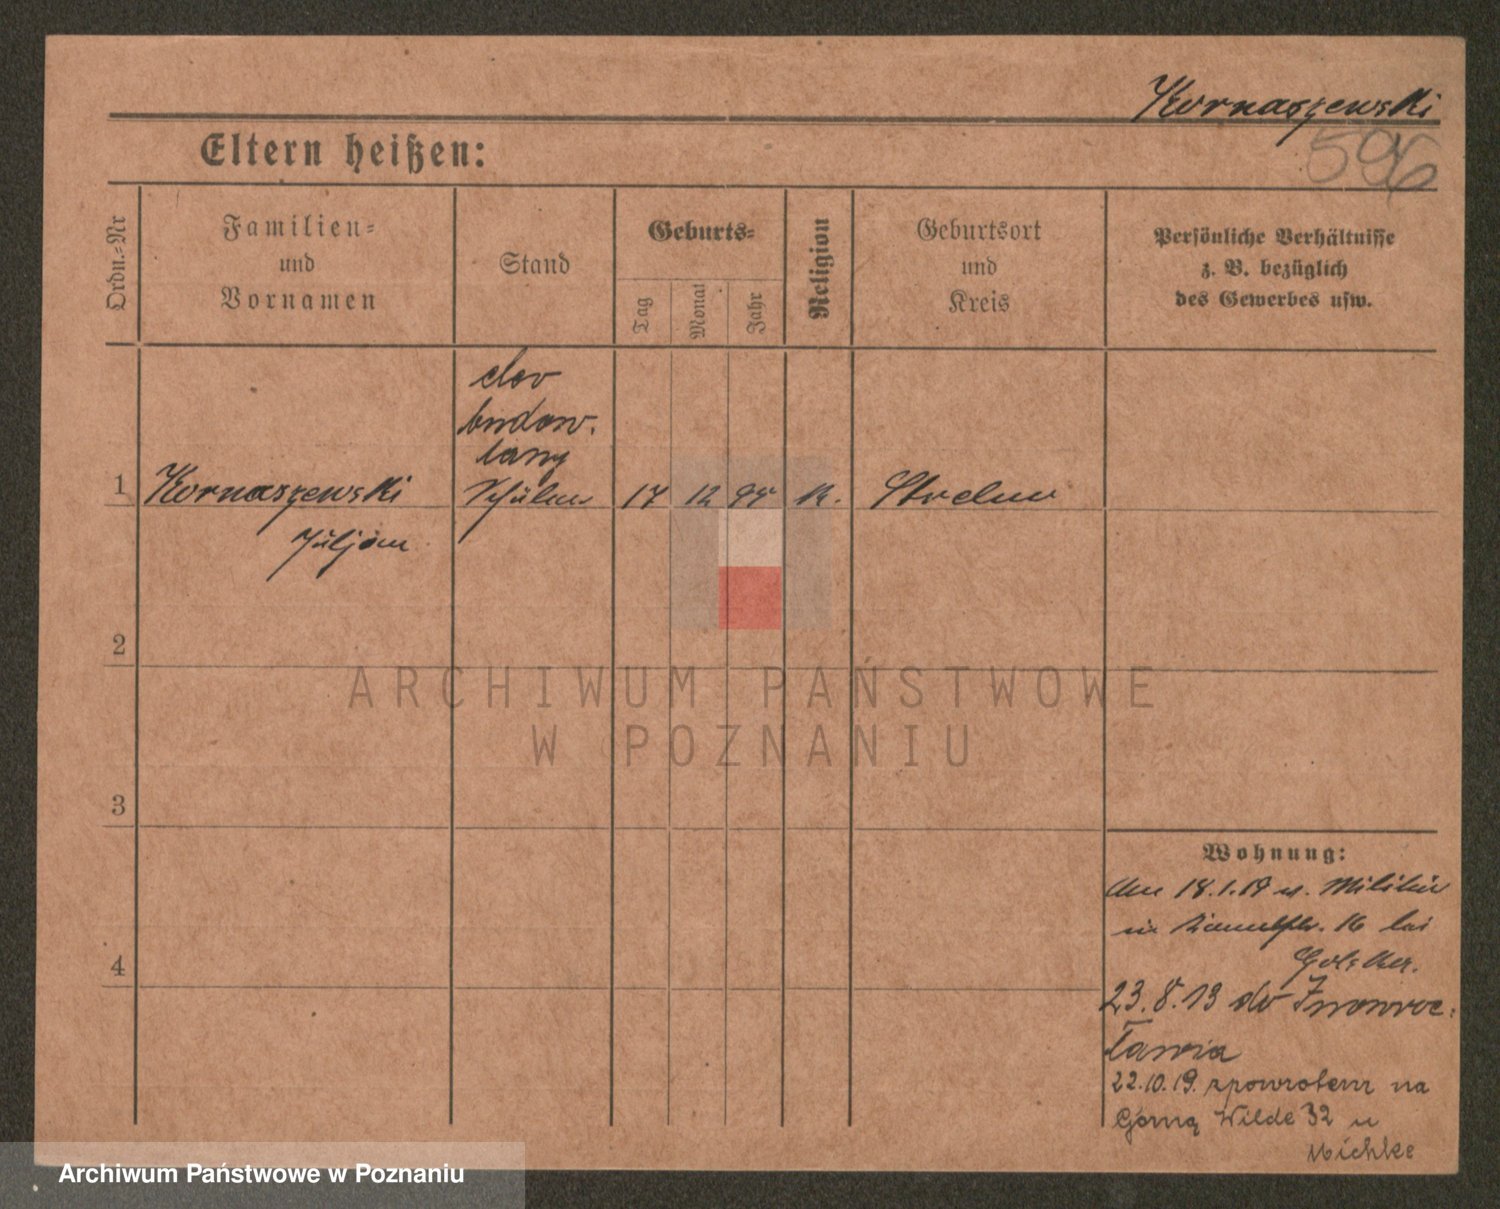 Kornaszewski
596
Eltern heißen:
Ordn.-Nr
Familien-
und
Vornamen
Stand
Geburts-
Tag
Monat
Jahr
Religion
Geburtsort
und
Kreis
Persönliche Verhältnisse
z. B. bezüglich
des Gewerbes usw.
elev
budow.
lany
1 Kornaszewski Schüler 17 12 95 K. Strelno
Juljan
2
3
4
Wohnung:
18.1.19 v. Militär
16 bei
23.8.19 do Inowroc-
ławia
22.10.19. zpowrotem na
Górną Wilde 32 u
Michke
ARCHIWUM PAŃSTWOWE
W POZNANIU
Archiwum Państwowe w Poznaniu